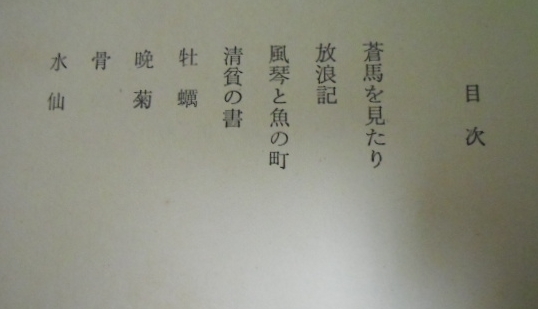 目次
蒼馬を見たり
放浪記
風琴と魚の町
清貧の書
牡蠣
晩菊
骨
水仙